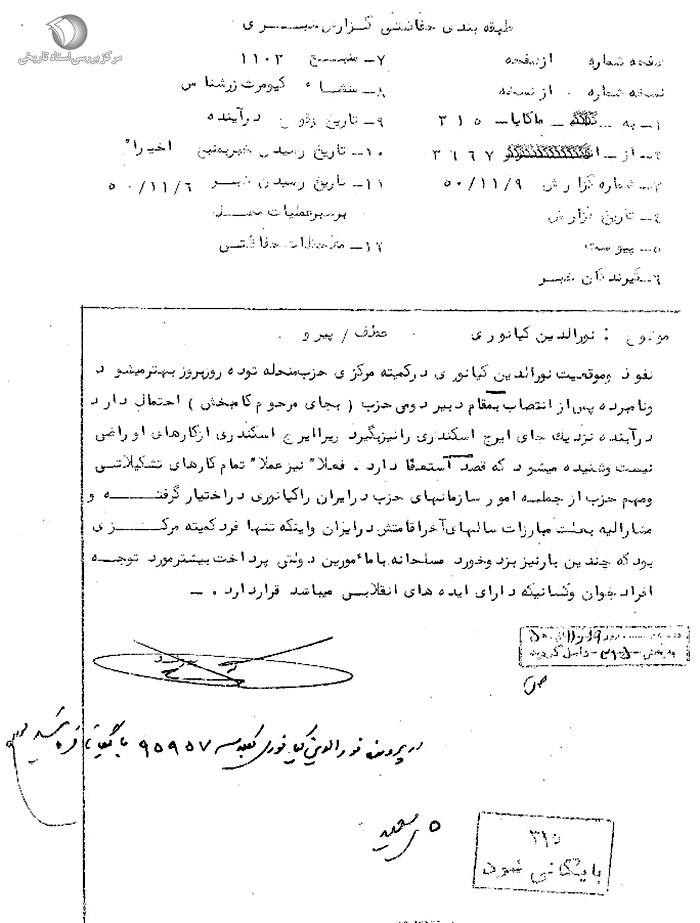 مرکز بررسی اسناد تاریخی
طبقه بندی حفاظتی گزارش خبری
صفحه شماره از صفحه
نسخه شماره از نسخه
۱- به ماکایا - ۳۱۵
۲- از ۳۶۶۷
۳- شماره گزارش ۵۰/۱۱/۹
۴- تاریخ گزارش
۵- پیوست
۶- گیرندگان خبر
۷- منبع ۱۱۰۳
۸- منشاء کیومرث زرشناس
۹- تاریخ وقوع درآینده
۱۰- تاریخ رسیدن خبر بمنبع اخیرا"
۱۱- تاریخ رسیدن خبر ۵۰/۱۱/۶
برهبر عملیات محل
۱۲- ملاحظات حفاظتی
موضوع : نورالدین کیانوری عطف / پیرو
نفوذ وموقعیت نورالدین کیانوری درکمیته مرکزی حزب منحله توده روزبروز بهتر میشود
ونامبرده پس از انتصاب بمقام دبیر دومی حزب ( بجای مرحوم کامبخش ) احتمال دارد
درآینده نزدیک جای ایرج اسکندری رانیز بگیرد زیرا ایرج اسکندری ازکارهای او راضی
نیست وشنیده میشود که قصد استعفا دارد . فعلا" نیز عملا" تمام کارهای تشکیلاتی
ومهم حزب از جمله امور سازمانهای حزب درایران راکیانوری دراختیار گرفته و
مشارالیه بعلت مبارزات سالهای آخر اقامتش درایران واینکه تنها فرد کمیته مرکزی
بود که چندین بار نیز بزد وخورد مسلحانه با مأمورین دولتی پرداخت بیشتر مورد توجه
افراد جوان وکسانیکه دارای ایده های انقلابی میباشد قرار دارد . -
۵۰/۱۱/۹
به بخش - ۳۱۵ - واصل گردید
در پرونده نورالدین کیانوری بکلاسه ۹۵۹۵۷ بایگانی
۳۱۵
بایگانی شود